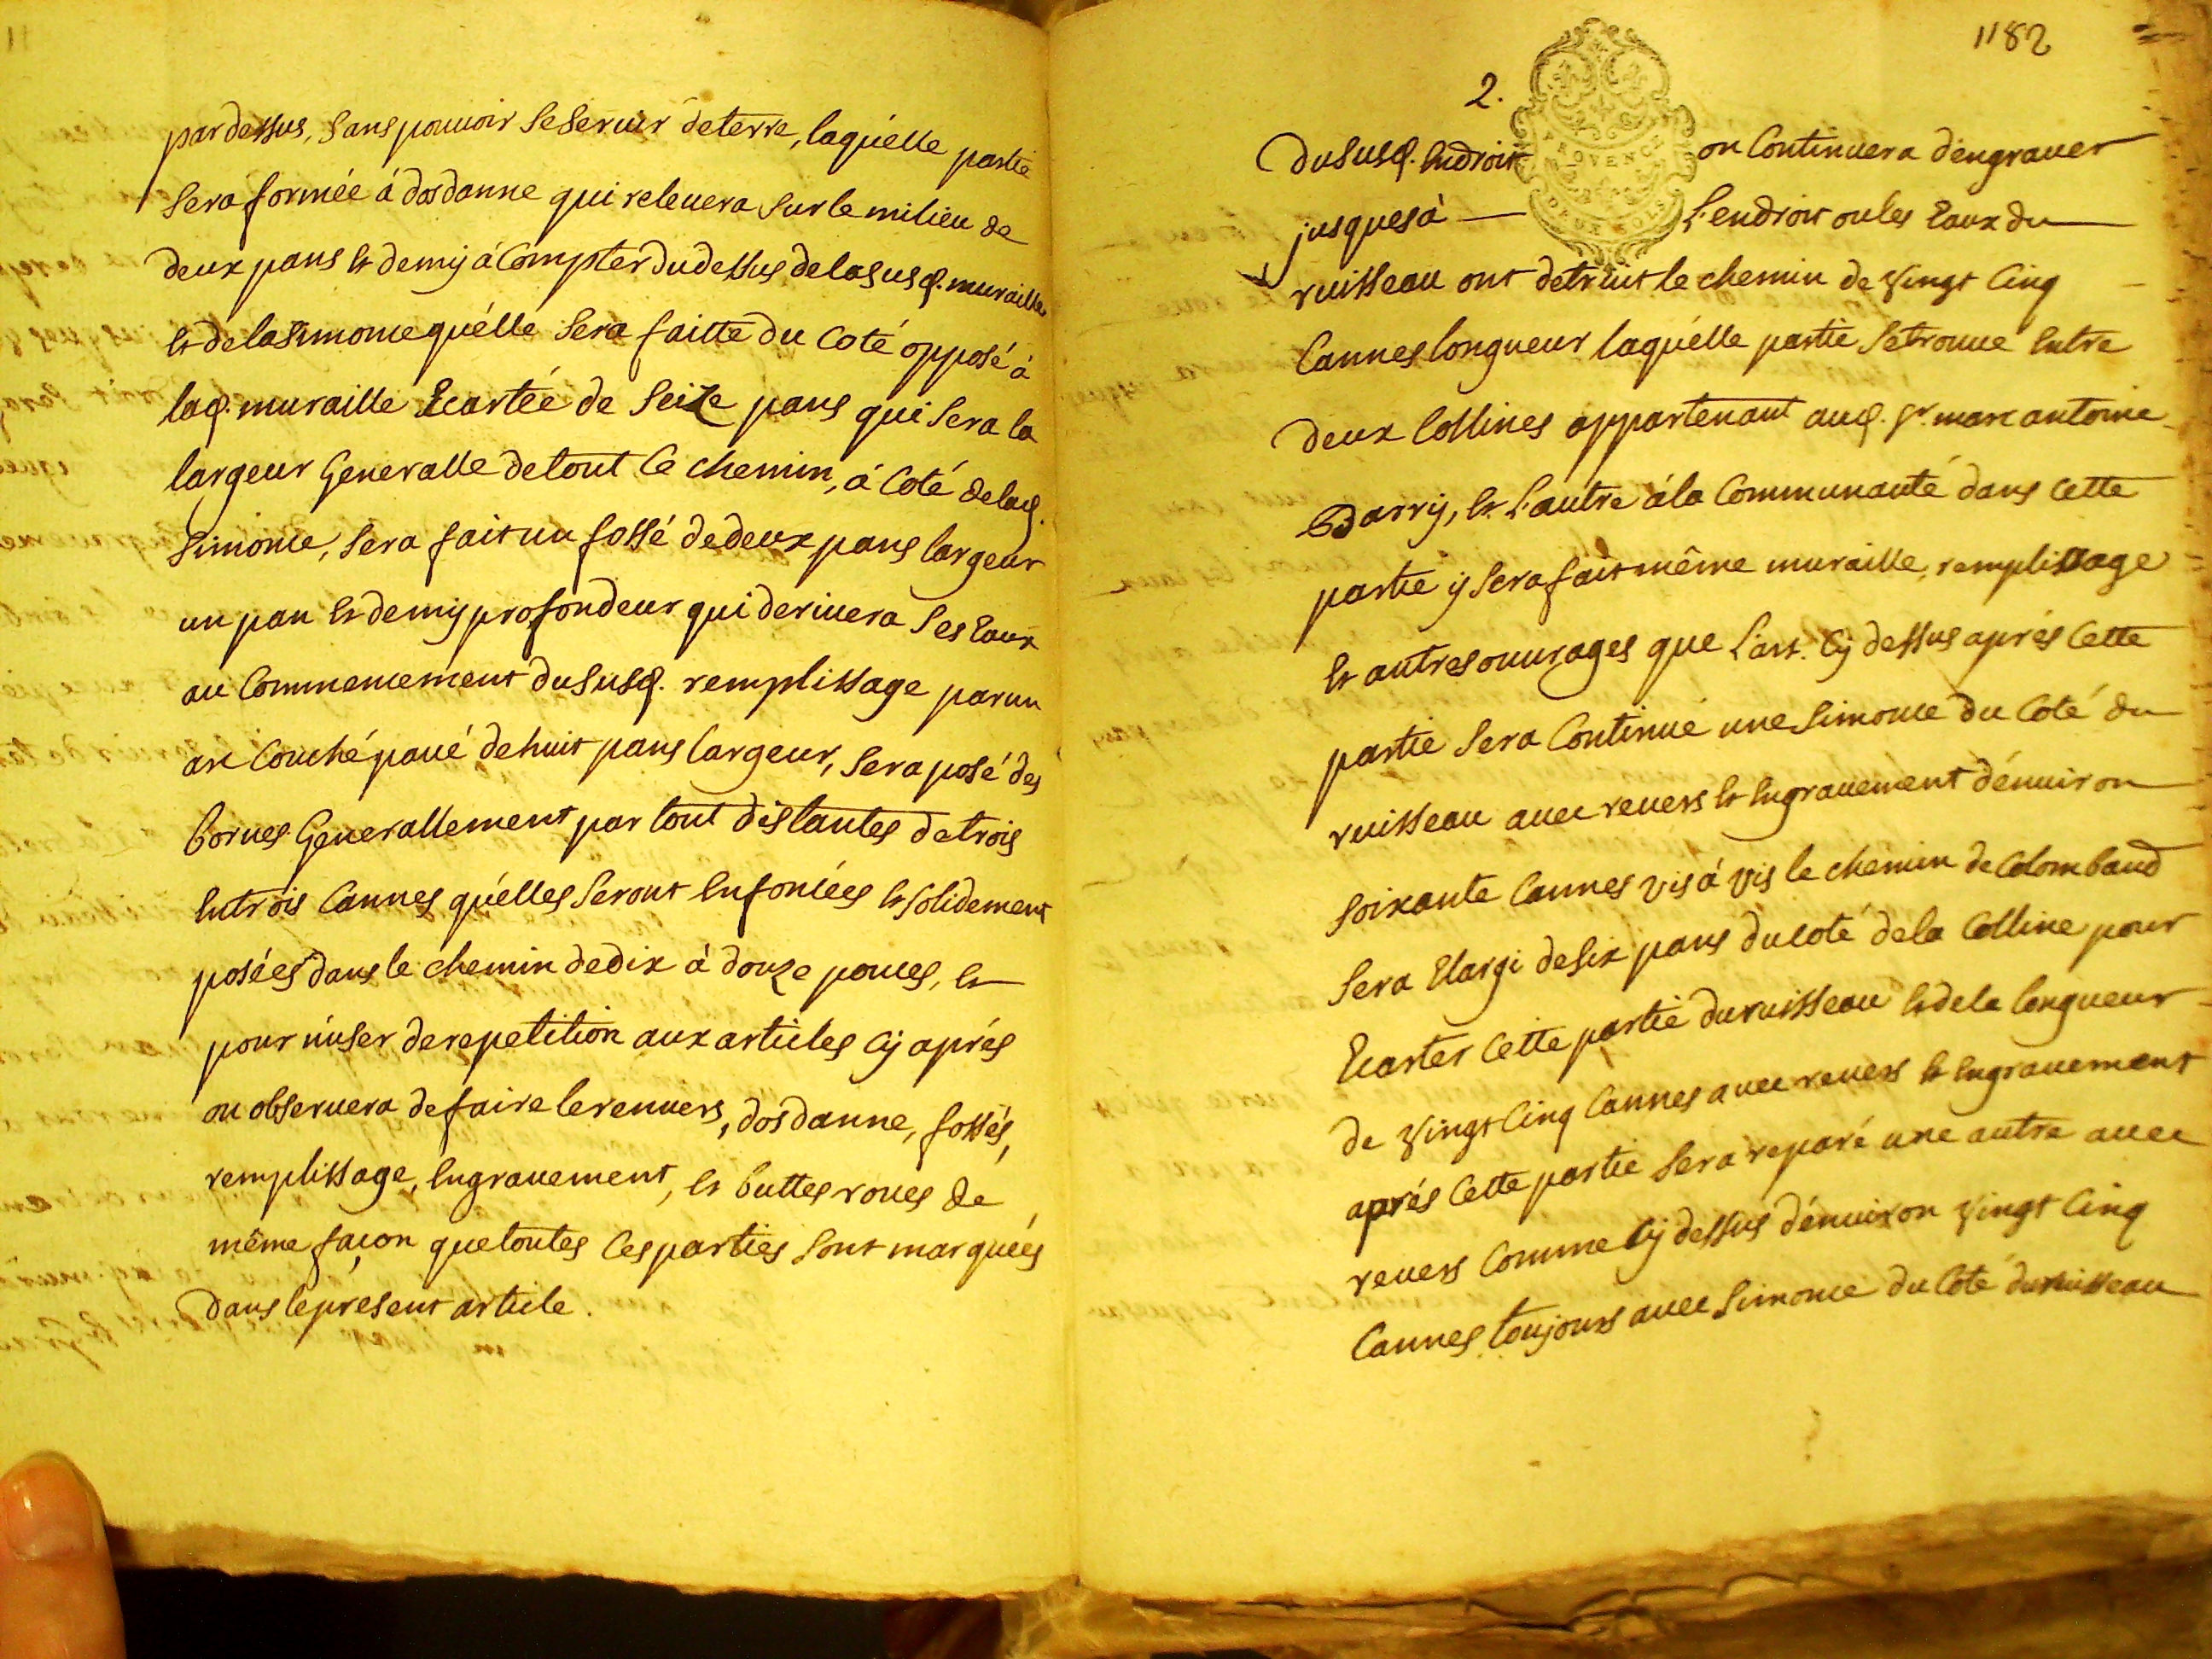 par dessus, sans pouvoir se servir de terre, laquélle partie
sera formée á dos danne qui relevera sur le milieu de
deux pans et demÿ á compter du dessus de la susd. muraille
et de la simome quélle sera faitte du coté opposé á
lad. muraille Ecartée de seize pans qui sera la
largeur Generalle de tout ce chemin, á coté de lad.
simome, sera fait un fossé de deux pans largeur
un pan et demÿ profondeur qui derivera ses Eaux
au commencement du susd. remplissage par un
arc couché pavé de huit pans largeur, sera posé des
bornes Generallement par tout distantes de trois
en trois cannes qu'elles seront enfoncées et solidement
posées dans le chemin de dix à douze pouces, et
pour n'user de repetition aux articles cÿ aprés
on observera de faire le renvers, dos danne, fossés,
remplissage, engravement, et buttes roues de
même façon que toutes ces parties sont marquées
dans le présent article.
1182
2.
PROVENCE
DEUX SOLS
Du susd. Endroit on continuera d'engraver
jusques à L'endroit ou les Eaux du
ruisseau ont detruit le chemin de vingt cinq
cannes longueur laquélle partie se trouve entre
deux collines appartenant aud. sr. marc antoine
Barrÿ, et L'autre á la communauté dans cette
partie ÿ sera fait même muraille, remplissage
et autres ouvrages que L'art. cÿ dessus aprés cette
partie sera continué une simome du coté du
ruisseau avec revers et engravement d'environ
soixante cannes vis á vis le chemin de Colombaud
sera Elargi de six pans du coté de la colline pour
Ecarter cette partie du ruisseau et de la longueur
de vingt cinq cannes avec revers et engravement
aprés cette partie sera reparé une autre avec
revers comme cÿ dessus d'environ vingt cinq
cannes toujours avec simome du coté du ruisseau